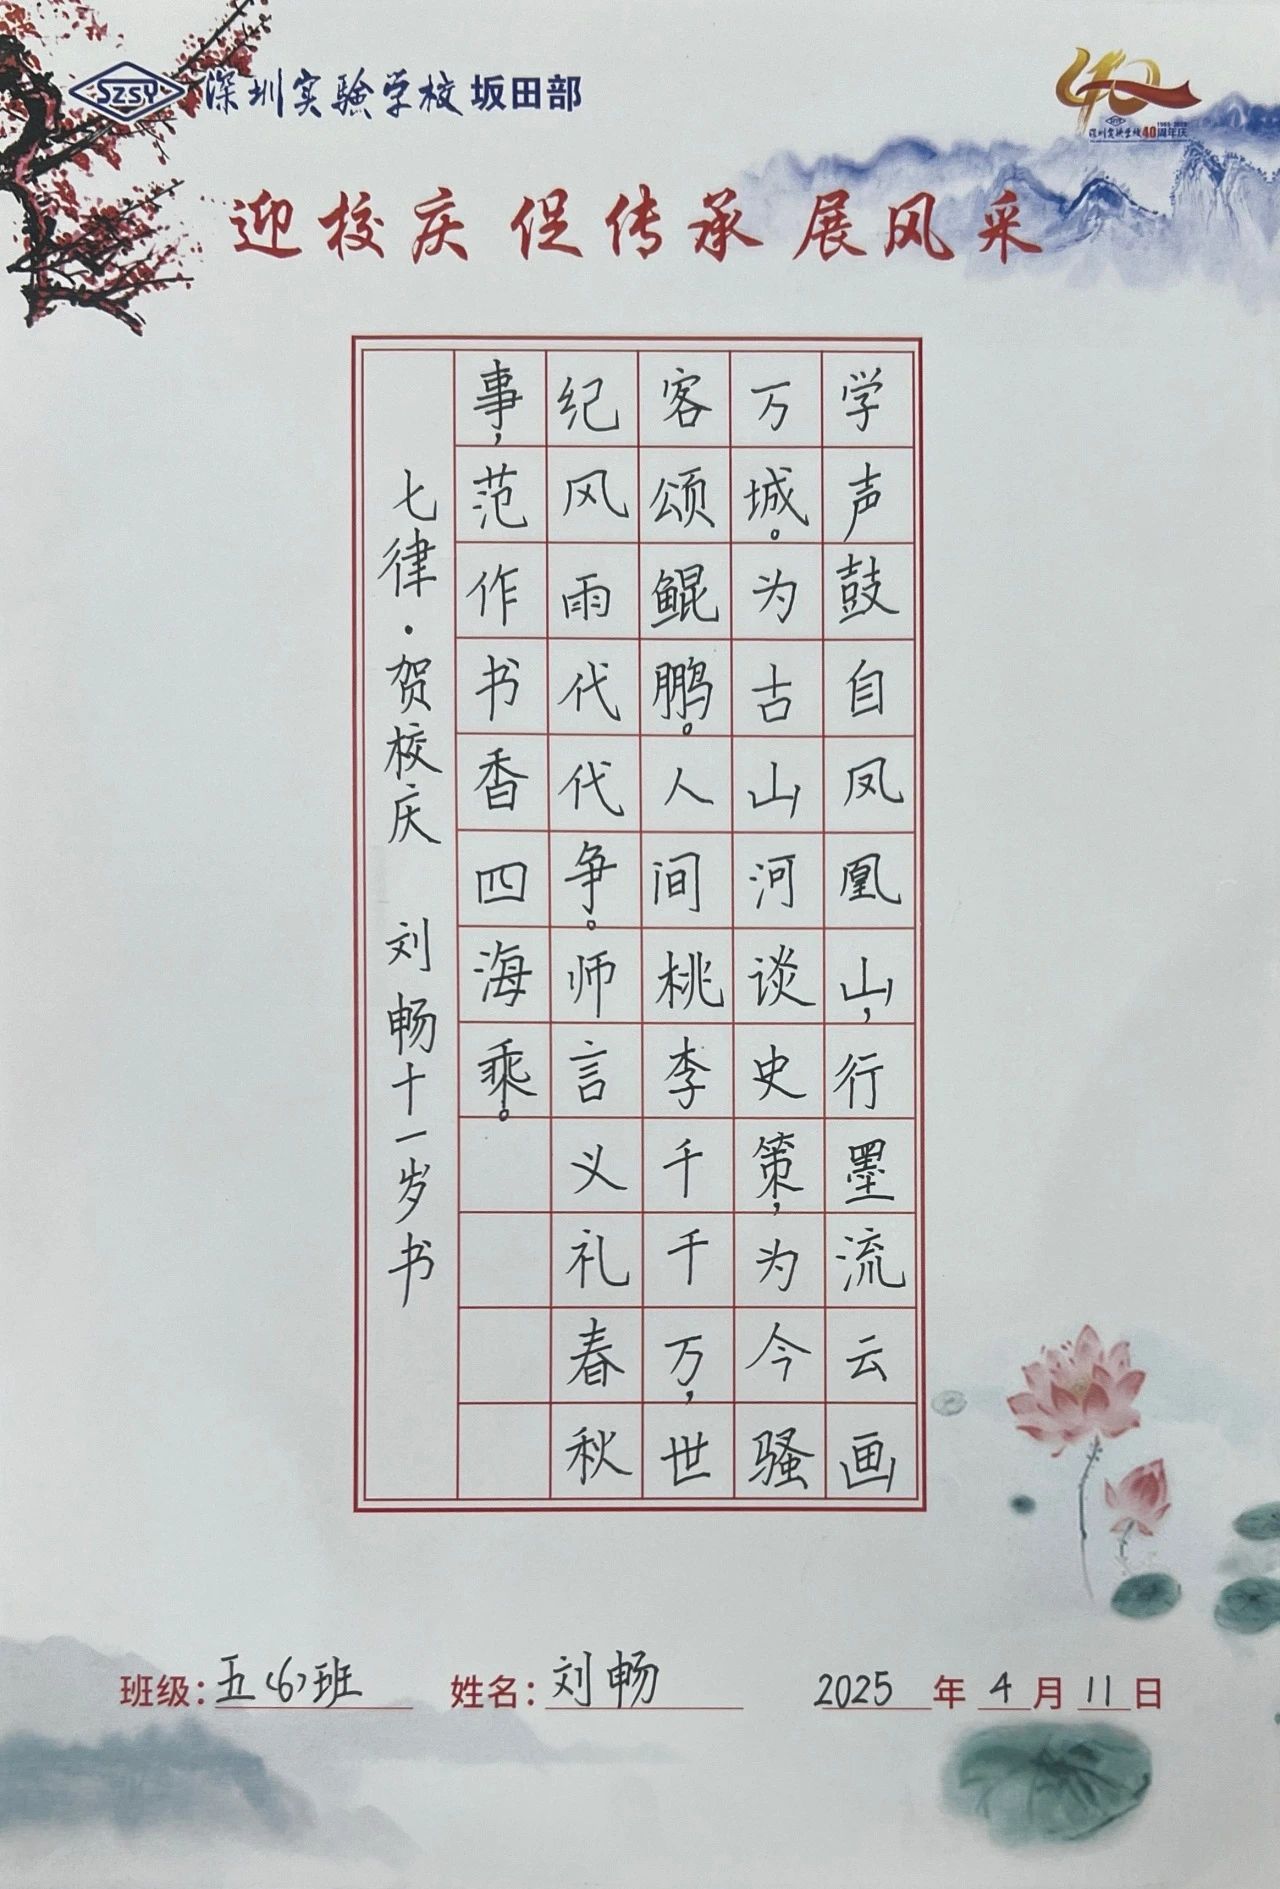 SZSY 深圳实验学校 坂田部
40
深圳实验学校40周年庆
迎校庆 促传承 展风采
学声鼓自凤凰山，行墨流云画
万城。为古山河谈史策，为今骚
客颂鲲鹏。人间桃李千千万，世
纪风雨代代争。师言义礼春秋
事，范作书香四海乘。
七律·贺校庆 刘畅十一岁书
班级：五（6）班 姓名：刘畅 2025年4月11日